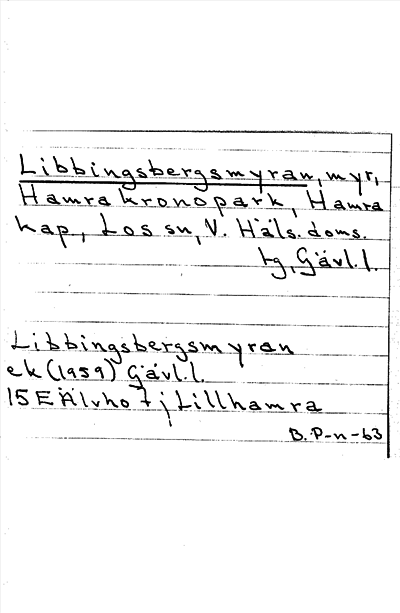 Libbingsbergsmyran, myr,
Hamra kronopark, Hamra
kap., Los sn, V. Häls. doms.
tg, Gävl. l.
Libbingsbergsmyran
ek (1959) Gävl. l.
15E Älvho 7 j Lillhamra
B. P-n-63